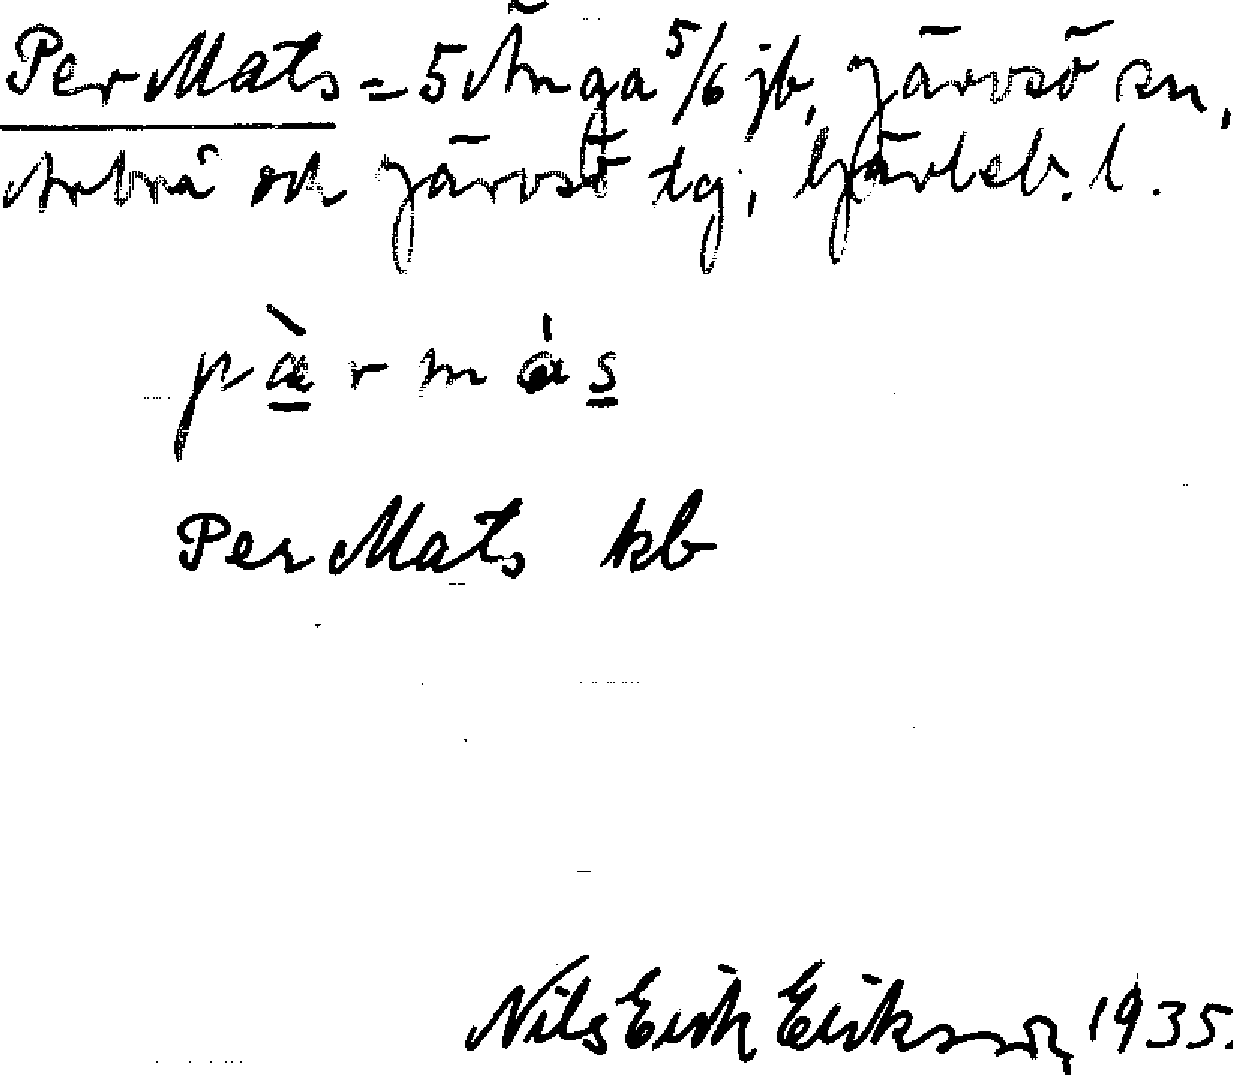 Per Mats = 5 Änga 5/6 jb, Järvsö sn,
Arbrå och Järvsö tg, Gävleb. l.
pæ̀r má s
Per Mats kb
Nils Erik Erikson, 1935.